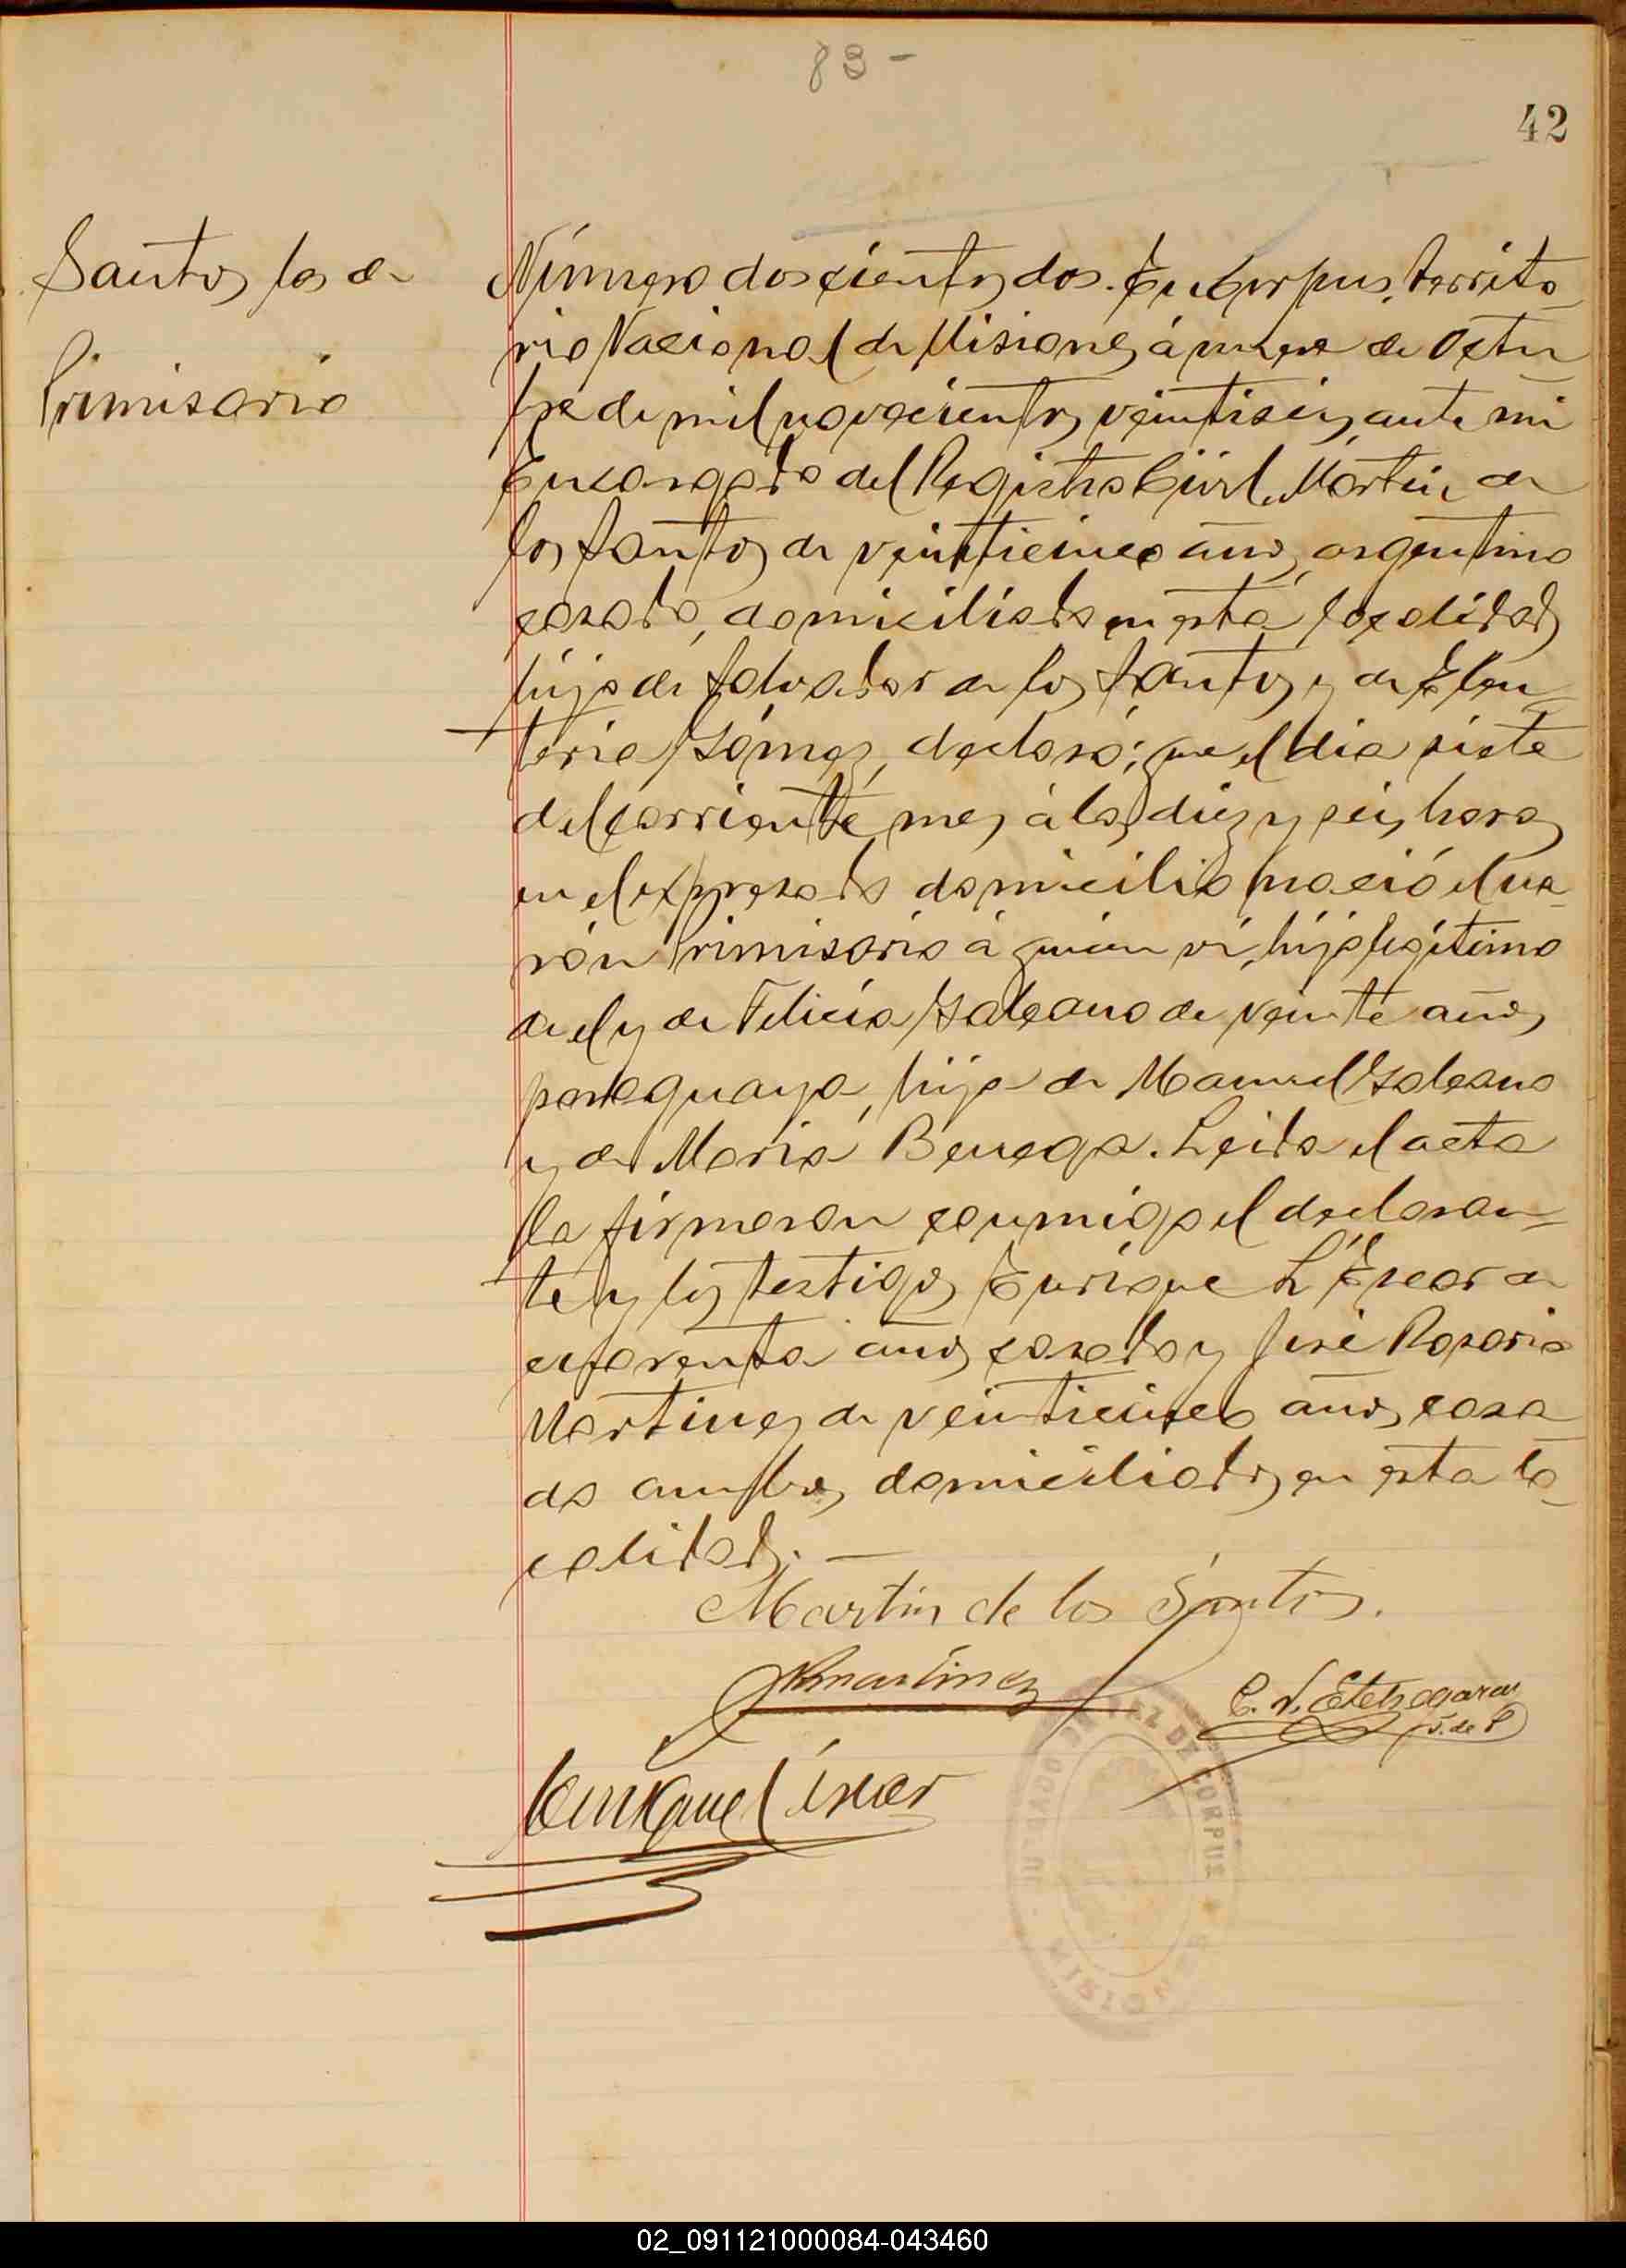 83-
42
Santos los de
Primisario
Número doscientos dos. En Corpus, Territo
rio Nacional de Misiones á nueve de Octu
bre de mil novecientos veintiseis, ante mi
Encargado del Registro Civil, Martin de
los Santos de veinticinco años, argentino
casado, domiciliado en esta localidad
hijo de Salvador de los Santos y de Eleu=
teria Gómez, declaró; que el dia siete
del corriente mes á las diez y seis horas
en el expresado domicilio nació el va-
rón Primisario á quien ví, hijo legítimo
de el y de Felicia Galeano de veinte años,
paraguaya, hija de Manuel Galeano
y de Maria Benega. Leida el acta
la firmaron conmigo el declaran=
te y los testigos Enrique L. Escar de
cuarenta años, casado y José Rosario
Martinez de veinticinco años, casa
do ambos domiciliados en esta lo-
calidad. —
Martin de los Santos.
Martinez
C. V. Etchegaray
J. de P
Enrique L. Escar
JUZGADO DE PAZ DE CORPUS
MISIONES
02_091121000084-043460